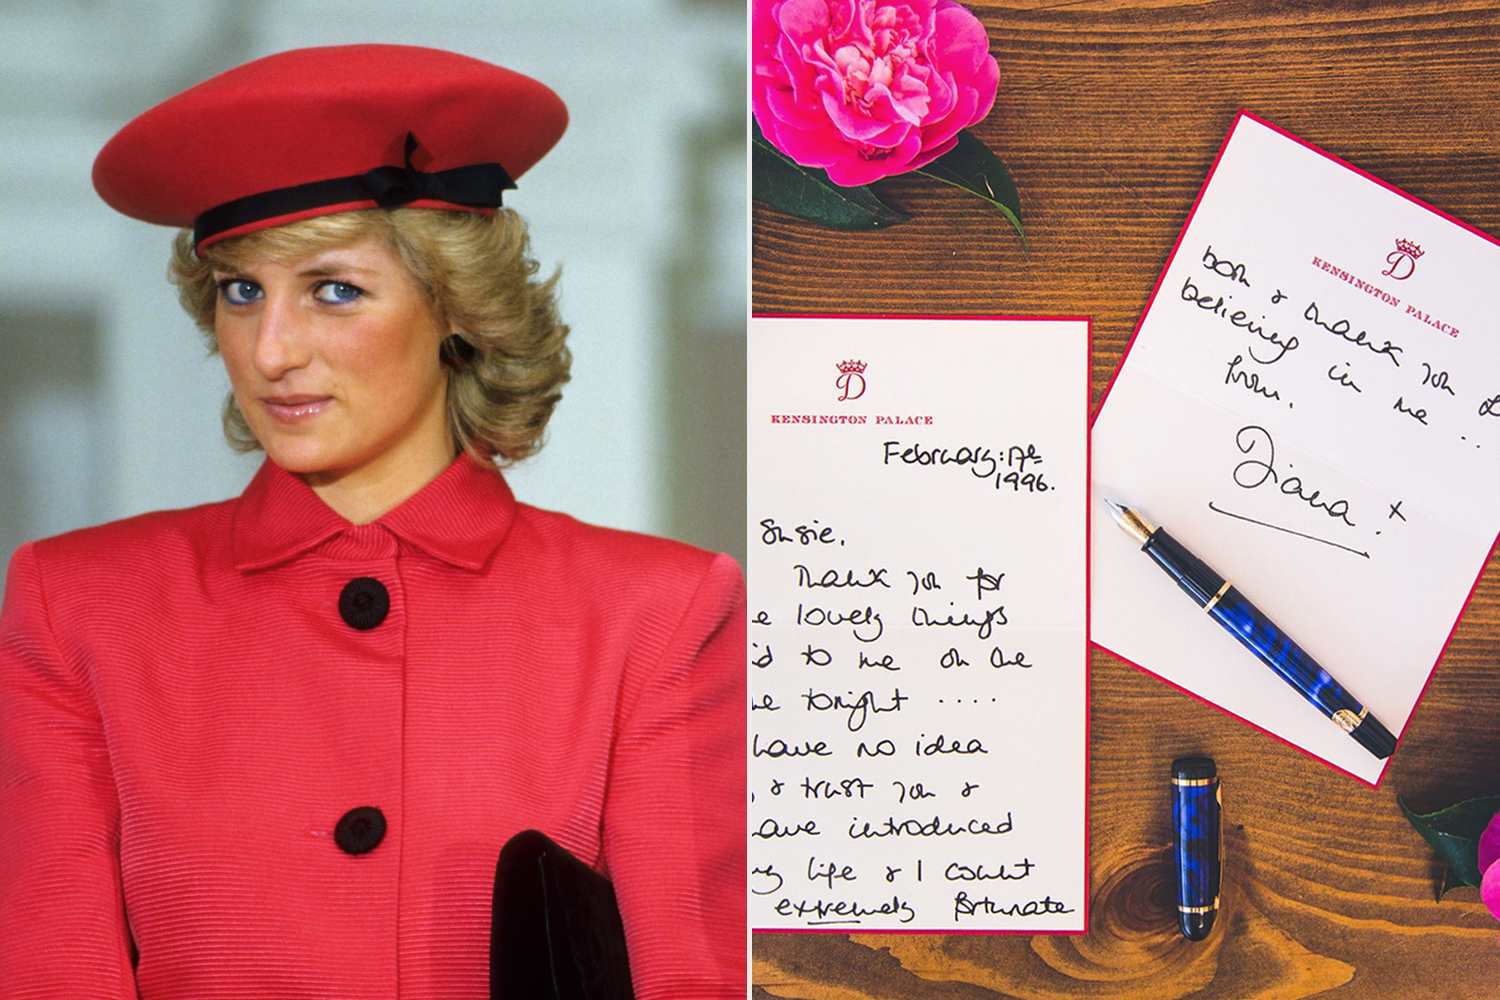 D
KENSINGTON PALACE
February: 17th
1996.
Susie.
Thank you for
e lovely things
id to me on the
ne tonight ....
have no idea
, & trust you &
have introduced
my life & I count
extremely fortunate
D
KENSINGTON PALACE
both & thank you
believing in me ..
from.
Diana. x